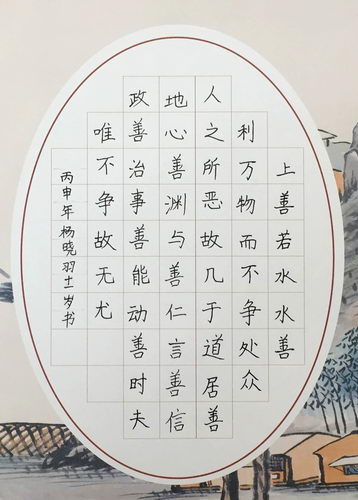 上善若水水善
利万物而不争处众
人之所恶故几于道居善
地心善渊与善仁言善信
政善治事善能动善时夫
唯不争故无尤
丙申年杨晓羽十一岁书